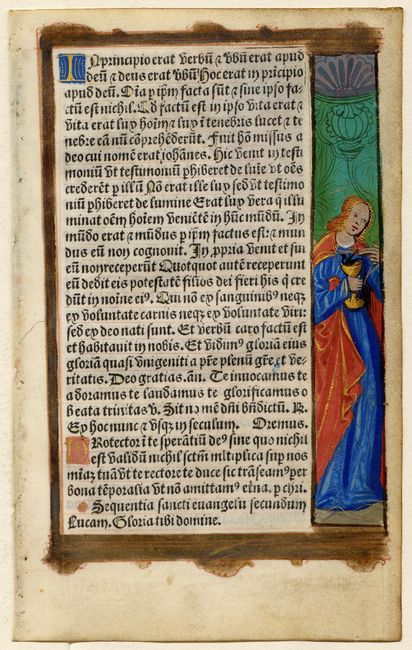 INprincipio erat verbũ & vbũ erat apud
deũ & deus erat vbũ! Hoc erat in pricipio
apud deũ. Oĩa p ipm̃ facta sũt & sine ipso fa-
ctũ est nichil. Qđ factũ est in ipso vita erat &
vita erat lux hoĩm & lux ĩ tenebris lucet & te
nebre eã nũ cõprehẽderũt. Fuit hõ missus a
deo cui nomẽ erat johãnes. Hic venit in testi
moniũ vt testimoniũ phiberet de luĩe vt oẽs
crederẽt p illũ Nõ erat ille lux sed vt testimo
niũ phiberet de lumine Erat lux vera q̃ illu
minat oẽm hoĩem veniẽtẽ in hũc mũdũ. In
mũdo erat & mũdus p ipm̃ factus est: & mun
dus eũ non cognouit. In ꝓpria venit et sui
eũ nonreceperũt Quotquot autẽ receperunt
eũ dedit eis potestatẽ filios dei fieri his q̃ cre
dũt in noĩne eiꝰ. Qui nõ ex sanguinibꝰ neqꝫ
ex voluntate carnis neqꝫ ex voluntate viri:
sed ex deo nati sunt. Et verbũ caro factũ est
et habitauit in nobis. Et vidimꝰ gloriã eius
gloriã quasi vnigeniti a p̃re plenũ gr̃e et ve-
ritatis. Deo gratias. añ. Te inuocamus te
adoramus te laudamus te glorificamus o
beata trinitas v̾. Sit no mẽ dñi bñdictũ. R.
Ex hoc nunc & vsqꝫ in seculum. Oremus.
PRotector ĩ te speratiũ deꝰ sine quo nichil
est validũ nichil sctm̃ mĩtiplica sup nos
miãꝫ tuã vt te rectore te duce sic trãseamꝰ per
bona tẽporalia vt nõ amittamꝰ et̃na. p chr̃.
Sequentia sancti euangelii secundum
Lucam. Gloria tibi domine.